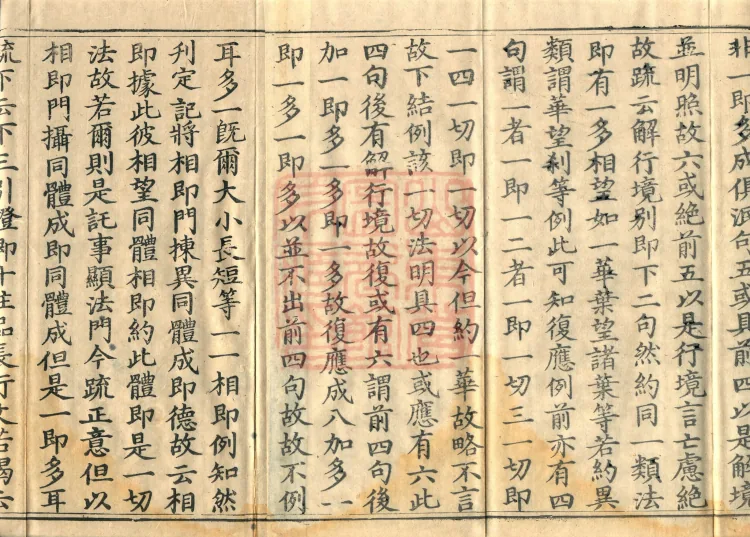 非一即多成俱泯句五或具前四以是解境
並明照故六或絶前五以是行境言亡慮絶
故疏云解行境別即下二句然約同一類法
即有一多相望如一華葉望諸葉等若約異
類謂華望刹等例此可知復應例前亦有四
句謂一者一即一二者一即一切三一切即
一四一切即一切以今但約一華故略不言
故下結例該一切法明具四也或應有六此
四句後有解行境故復或有六謂前四句後
加一即多一多即一多故復應成八加多一
即一多一即多以並不出前四句故故不例
耳多一旣爾大小長短等一一相即例知然
刋定記將相即門揀異同體成即德故云相
即據此彼相望同體相即約此體即是一切
法故若爾則是託事顯法門今疏正意但以
相即門攝同體成即同體成但是一即多耳
疏下云下三引證即十住品長行文若偈云